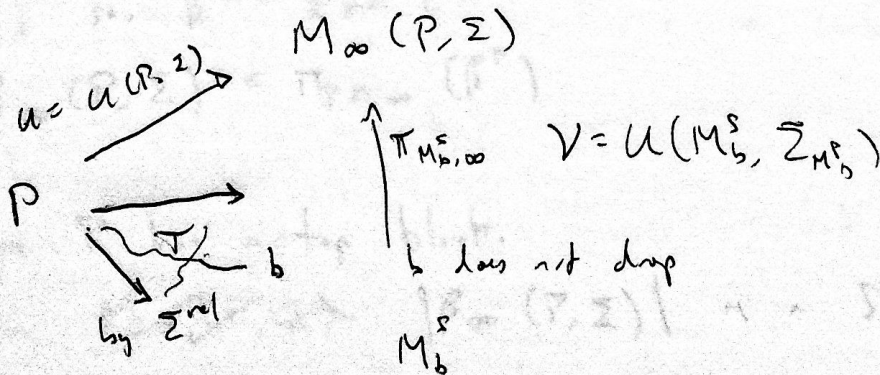 M∞ (P, Σ)
U = U(P, Σ)
π_{M_b^s, ∞}
V = U(M_b^s, Σ_{M_b^s})
P
T
b
b does not drop
by Σ^{rel}
M_b^s